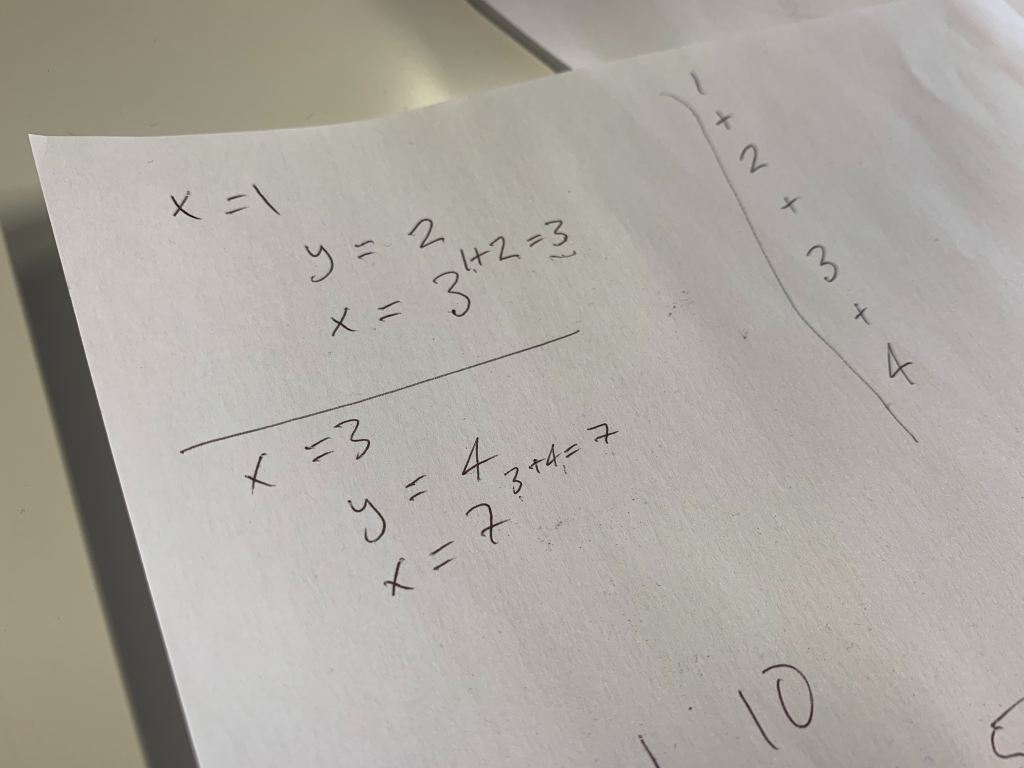 x = 1
y = 2
x = 3 1+2=3
x = 3
y = 4
x = 7 3+4=7
1
+
2
+
3
+
4
10